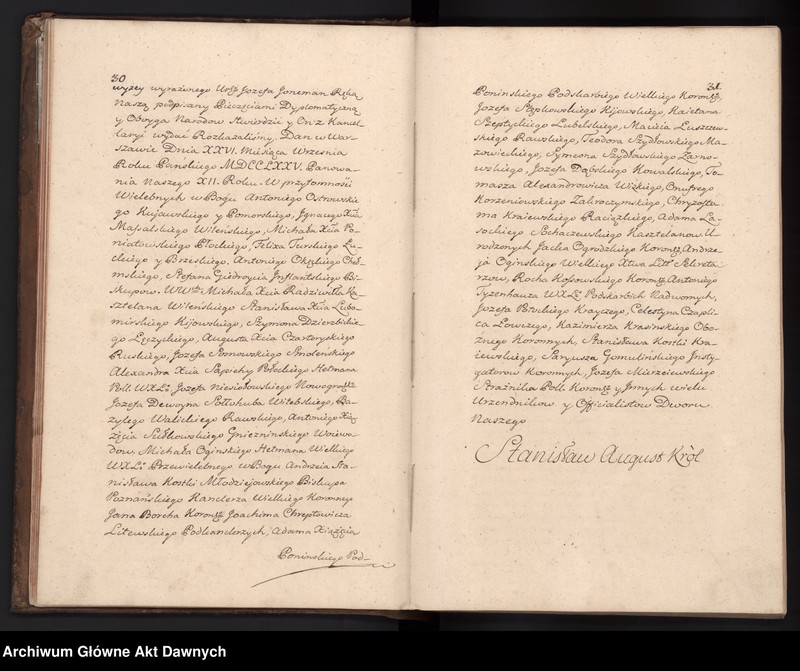 30
wyżey wyrażonego Urdz Jozefa Joneman Ręką
Naszą podpisany Pieczęciami Dyplomatyczną
y Oboyga Narodow stwierdzić y Onż z Kancel-
laryi wydać Rozkazaliśmy. Dan w War-
szawie Dnia XXVI. Miesiąca Wrzesnia
Roku Pańskiego MDCCLXXV. Panowa-
nia Naszego XII. Roku. W przytomności
Wielebnych w Bogu Antoniego Ostrowskie-
go Kujawskiego y Pomorskiego, Ignacego Xcia
Massalskiego Wileńskiego, Michała Xcia Po-
niatowskiego Płockiego, Felixa Turskiego Łu-
ckiego y Brzeskiego, Antoniego Okęckiego Cheł-
mskiego, Stefana Giedroycia Inflantskiego Bi-
skupow. WWch Michała Xcia Radziwiłła Ka-
sztelana Wileńskiego Stanisława Xcia Lubo-
mirskiego Kijowskiego, Szymona Dzierzbickie-
go Łęczyckiego, Augusta Xcia Czartoryskiego
Ruskiego, Jozefa Sosnowskiego Smoleńskiego
Alexandra Xcia Sapiehy Połockiego Hetmana
Poll. WXLi. Jozefa Niesiołowskiego Nowogrodz
Jozefa Dewoyna Sołłohuba Witebskiego, Ba-
zylego Walickiego Rawskiego, Antoniego Xią-
żęcia Sułkowskiego Gniezninskiego Woiewo-
dow. Michała Oginskiego Hetmana Wielkiego
WXLo. Przewielebnego w Bogu Andrzeia Sta-
nisława Kostki Młodziejowskiego Biskupa
Poznańskiego Kanclerza Wielkiego Koronnego
Jana Borcha Koronn Joachima Chreptowicza
Litewskiego Podkanclerzych, Adama Xiążęcia
Poninskiego Pod-
31.
Poninskiego Podskarbiego Wielkiego Koronn,
Jozefa Stępkowskiego Kijowskiego, Kaietana
Szeptyckiego Lubelskiego, Macieia Łuszczew-
skiego Rawskiego, Teodora Szydłowskiego Ma-
zowieckiego, Symeona Szydłowskiego Żarno-
wskiego, Jozefa Dąbskiego Kowalskiego, To-
masza Alexandrowicza Wizkiego, Onufrego
Korzeniowskiego Zakroczymskiego, Chryzosto-
ma Kraiewskiego Raciązkiego, Adama La-
sockiego Sochaczewskiego Kasztelanow. U-
rodzonych Jacka Ogrodzkiego Koronn Andrze-
ja Oginskiego Wielkiego Xtwa Litt Sekreta-
rzow, Rocha Kossowskiego Koronn, Antoniego
Tyzenhauza WXLi. Podskarbich Nadwornych,
Jozefa Potockiego Krayczego, Celestyna Czapli-
ca Łowczego, Kazimierza Krasinskiego Obo-
znego Koronnych, Stanisława Kostki Kra-
iewskiego, Saryusza Gomulińskiego Insty-
gatorow Koronnych, Jozefa Mierzeiewskiego
Straznika Poll. Koronn y Innych wielu
Urzędnikow y Officialistow Dworu
Naszego
Stanisław August Król
Archiwum Główne Akt Dawnych